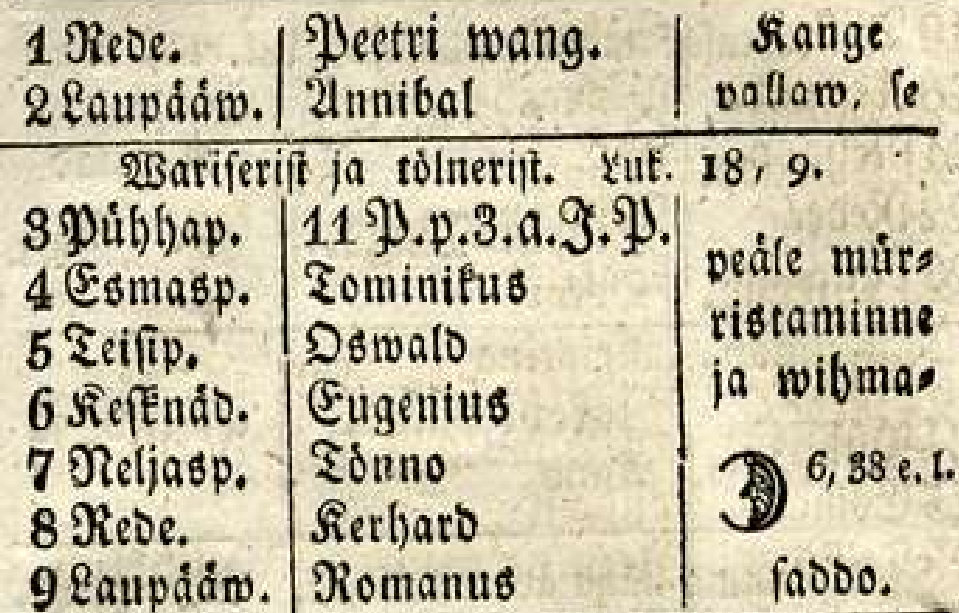 1 Rede. Peetri wang. Kange
2 Laupääw. Annibal pallaw, se
Wariserist ja tölnerist. Luk. 18, 9.
3 Pühhap. 11 P.p.3.a.J.P.
4 Esmasp. Tominikus peäle mür-
5 Teisip. Oswald ristaminne
6 Kesknäd. Eugenius ja wihma-
7 Neljasp. Tönno 6, 38 e. l.
8 Rede. Kerhard
9 Laupääw. Romanus saddo.